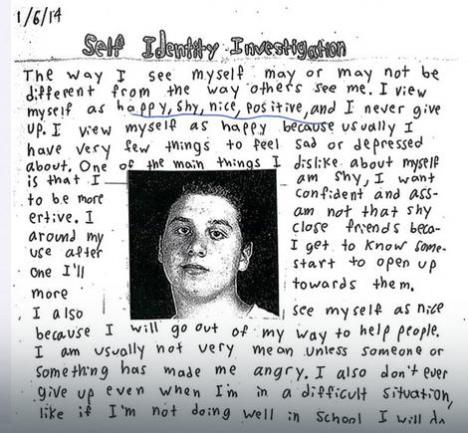 1/6/14
Self Identity Investigation
The way I see myself may or may not be
different from the way others see me. I view
myself as happy, shy, nice, positive, and I never give
up. I view myself as happy because usually I
have very few things to feel sad or depressed
about. One of the main things I dislike about myself
is that I am shy, I want
to be more confident and ass-
ertive. I am not that shy
around my close friends beca-
use after I get to know some-
one I'll start to open up
more towards them.
I also see myself as nice
because I will go out of my way to help people.
I am usually not very mean unless someone or
something has made me angry. I also don't ever
give up even when I'm in a difficult situation,
like if I'm not doing well in school I will do